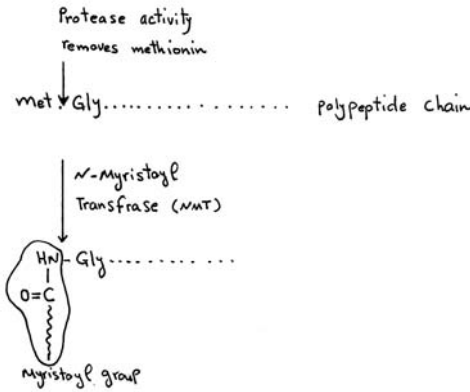 Protease activity
removes methionin
met. Gly.................... polypeptide chain
N-Myristoyl
Transfrase (NMT)
HN-Gly.............
O=C
Myristoyl group